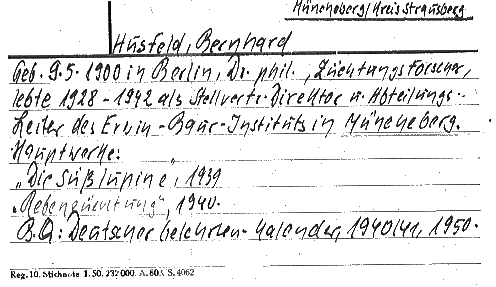 Müncheberg/Kreis Strausberg
Husfeld, Bernhard
Geb. 9.5.1900 in Berlin, Dr. phil., Züchtungsforscher,
lebte 1928-1942 als Stellvertr. Direktor u. Abteilungs-
Leiter des Erwin-Baur-Instituts in Müncheberg.
Hauptwerke:
"Die Süßlupine", 1939
"Rebenzüchtung", 1940.
B.Q: Deutscher Gelehrten-Kalender, 1940/41, 1950.
Reg. 10. Stichnote 1. 50. 232000. A. 803 S. 4062